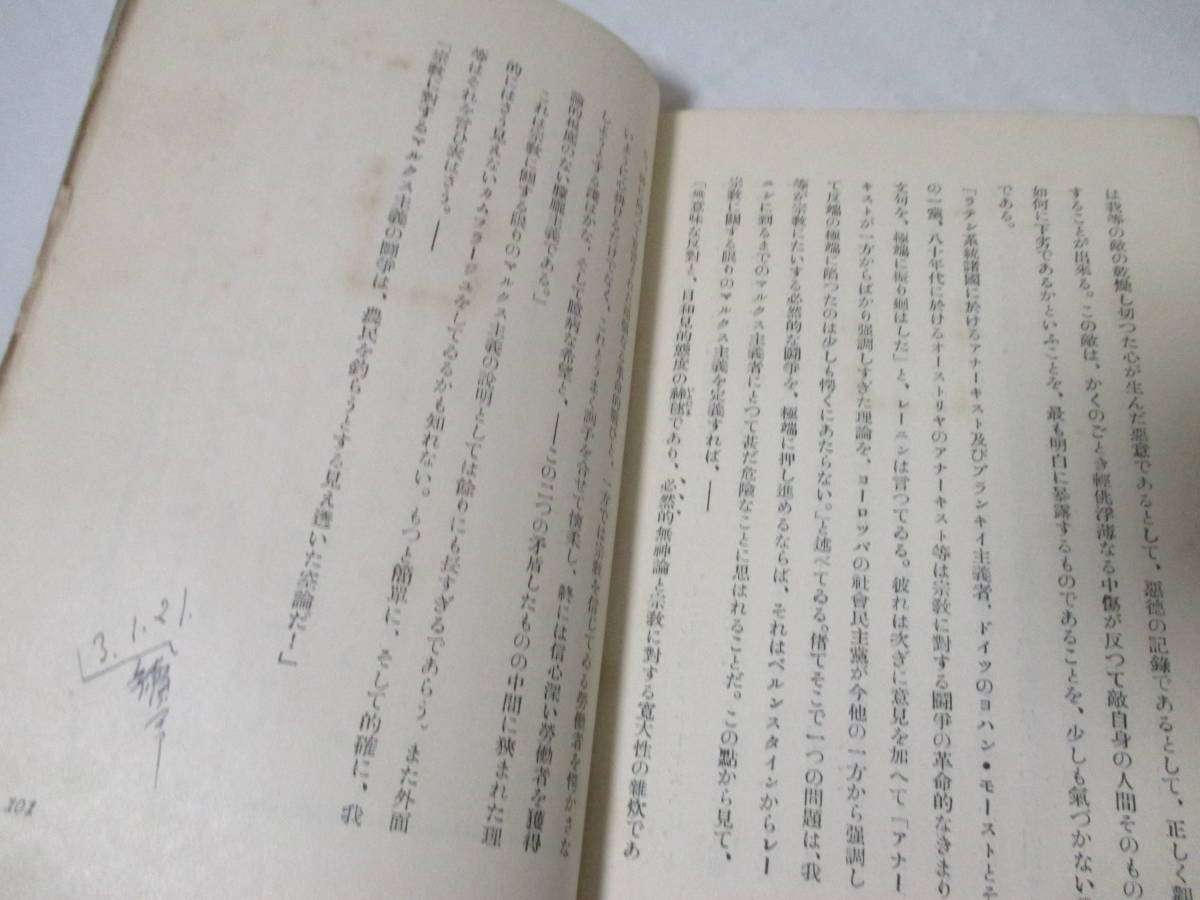 は我等の敵の乾燥し切つた心が生んだ惡意であるとして、惡徳の記錄であるとして、正しく
することが出來る。この敵は、かくのごとき輕佻浮薄なる中傷が反つて敵自身の人間そのもの
如何に下劣であるかといふことを、最も明白に暴露するものであることを、少しも氣づかない
である。
「ラテン系統諸國に於けるアナーキスト及びブランキイ主義者、ドイツのヨハン・モーストとそ
の一黨、八十年代に於けるオーストリヤのアナーキスト等は宗教に對する闘爭の革命的なきまり
文句を、極端に振り廻はした」と、レーニンは言つてゐる。彼れは次ぎに意見を加へて「アナー
キストが一方からばかり强調しすぎた理論を、ヨーロッパの社會民主黨が今他の一方から强調し
て反端の極端に陷つたのは少しも愕くにあたらない。」と述べてゐる。偖てそこで一つの問題は、我
等が宗教にたいする必然的な闘爭を、極端に押し進めるならば、それはベルンスタインからレー
ニンに到るまでのマルクス主義者にとつて甚だ危險なことに思はれることだ。この點から見て、
宗教に關する限りのマルクス主義を定義すれば、――
「無意味な反對と、日和見的態度の絲毬であり、必然的無神論と宗教に對する寬大性の雜炊であ
一方では宗教を信じてゐる勞働者を愕かさな
いやうに心掛けるだけでなく、これとうまく調子を合せて懷柔し、終には信心深い勞働者を獲得
しやうとする
そして臆病な希望と、――この二つの矛盾したものの中間に狹まれた理
論的根底のない朦朧主義である。」
これは宗教に關する限りのマルクス主義の說明としては餘りにも長すぎるであらう。また外面
的にはさう見えないカムフラージュをしてゐるかも知れない。もつと簡單に、そして的確に、我
等はそれを言ひ表はさう。――
「宗教に對するマルクス主義の闘爭は、農民を釣らうとする見え透いた空論だ！」
3.1.21.
101